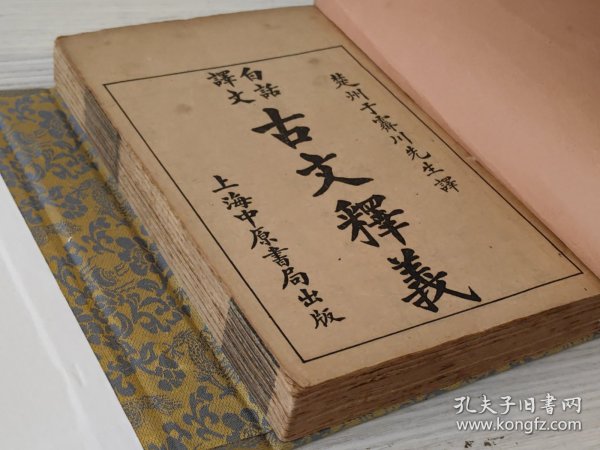 楚州于霖川先生譯
白話
譯文
古文釋義
上海中原書局出版
孔夫子旧书网
www.kongfz.com